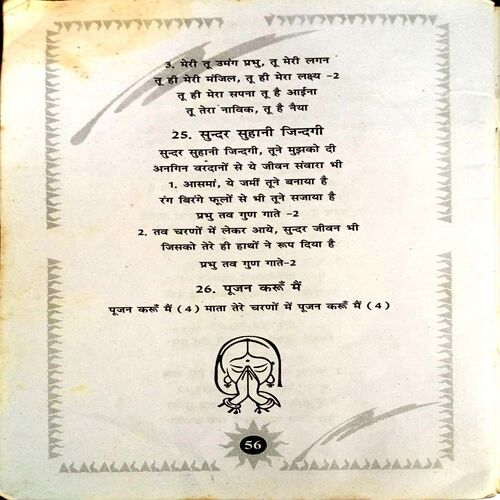 3. मेरी तू उमंग प्रभु, तू मेरी लगन
तू ही मेरी मंजिल, तू ही मेरा लक्ष्य -2
तू ही मेरा सपना तू है आईना
तू तेरा नाविक, तू है नैया
25. सुन्दर सुहानी जिन्दगी
सुन्दर सुहानी जिन्दगी, तूने मुझको दी
अनगिन वरदानों से ये जीवन संवारा भी
1. आसमां, ये जमीं तूने बनाया है
रंग बिरंगे फूलों से भी तूने सजाया है
प्रभु तव गुण गाते -2
2. तव चरणों में लेकर आये, सुन्दर जीवन भी
जिसको तेरे ही हाथों ने रूप दिया है
प्रभु तव गुण गाते-2
26. पूजन करूँ मैं
पूजन करूँ मैं (4) माता तेरे चरणों में पूजन करूँ मैं (4)
56